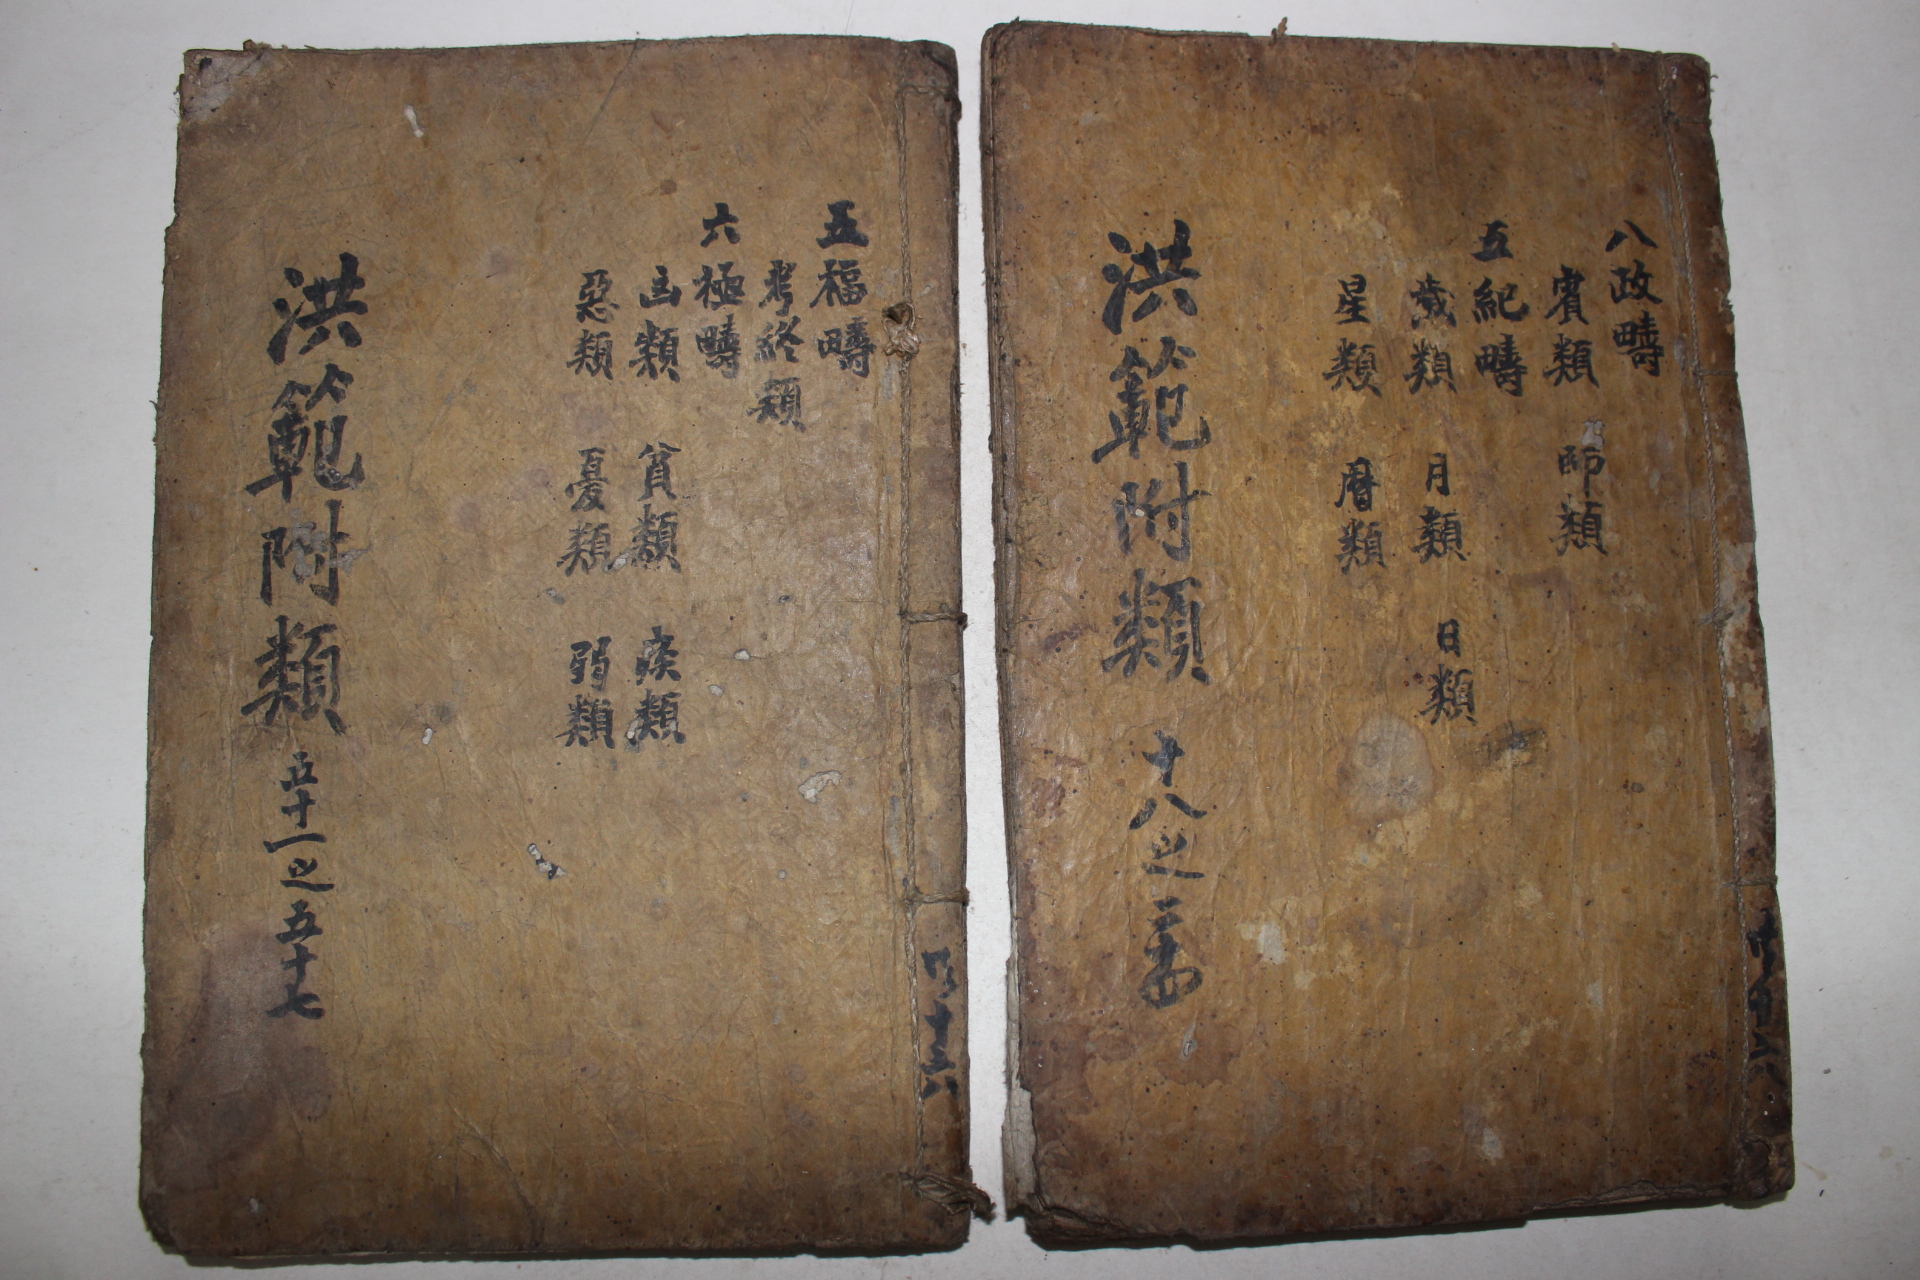 八政疇
賓類 師類
五紀疇
歲類 月類 日類
星類 曆類
洪範附類 十八之二十四
五福疇
考終類
六極疇
凶類 貧類 疾類
惡類 憂類 弱類
洪範附類 五十一之五十七
十六